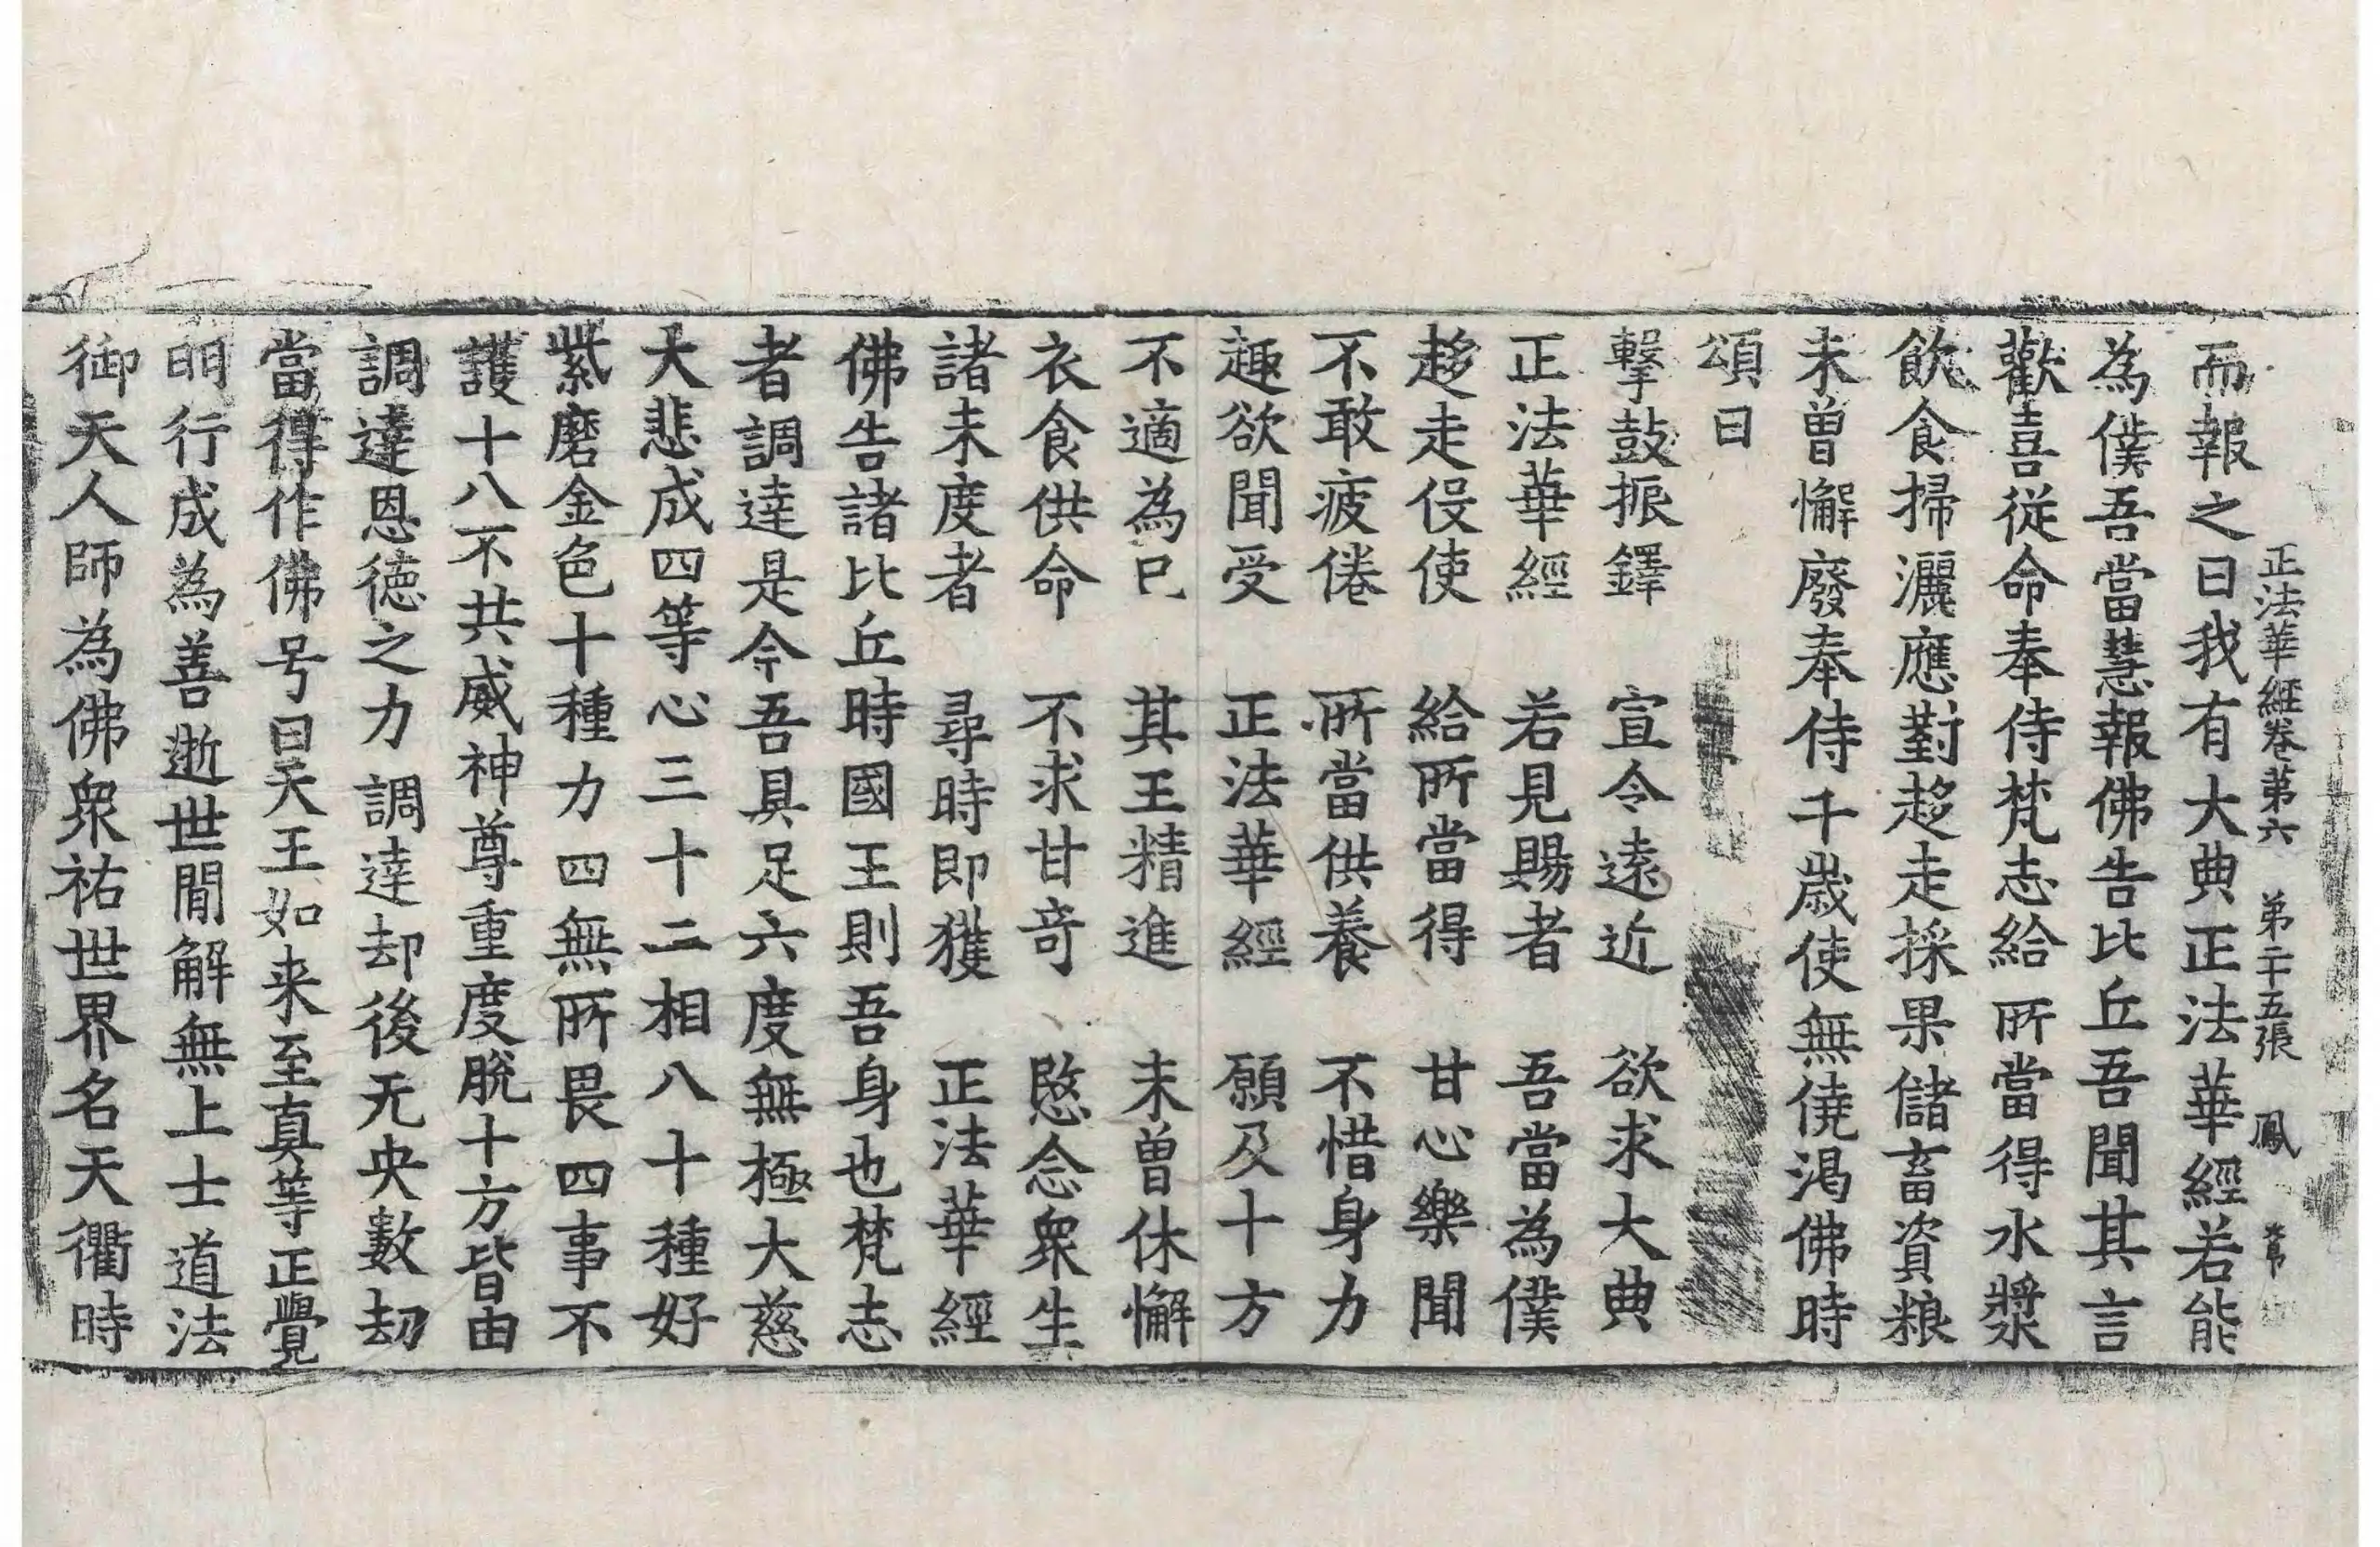 正法華經卷第六 第二十五張 鳳
而報之曰我有大典正法華經若能
為僕吾當慧報佛告比丘吾聞其言
歡喜從命奉侍梵志給所當得水漿
飲食掃灑應對趍走採果儲畜資粮
未曽懈廢奉侍千歳使無僥渴佛時
頌曰
擊鼓振鐸 宣令遠近 欲求大典
正法華經 若見賜者 吾當為僕
趍走伇使 給所當得 甘心樂聞
不敢疲倦 所當供養 不惜身力
趣欲聞受 正法華經 願及十方
不適為已 其王精進 未曽休懈
衣食供命 不求甘竒 愍念衆生
諸未度者 尋時即獲 正法華經
佛告諸比丘時國王則吾身也梵志
者調達是今吾具足六度無極大慈
大悲成四等心三十二相八十種好
紫磨金色十種力四無所畏四事不
護十八不共威神尊重度脫十方皆由
調達恩德之力調達却後无央數劫
當得作佛号曰天王如来至真等正覺
明行成為善逝世閒解無上士道法
御天人師為佛衆祐世界名天衢時